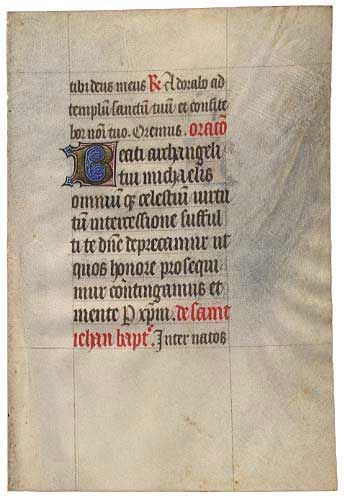 tibi deus meus R̃ Adorabo ad
templũ sanctũ tuũ et confite
bor noĩ tuo. Oremus. oracõ
Beati archangeli
tui michaelis
omniũ q̃ celestiũ virtu
tũ intercessione sufful
ti te dñe deprecamur ut
quos honore prosequi
mur contingamus et
mente P xp̃m. de saint
iehan bapt̃e. Inter natos